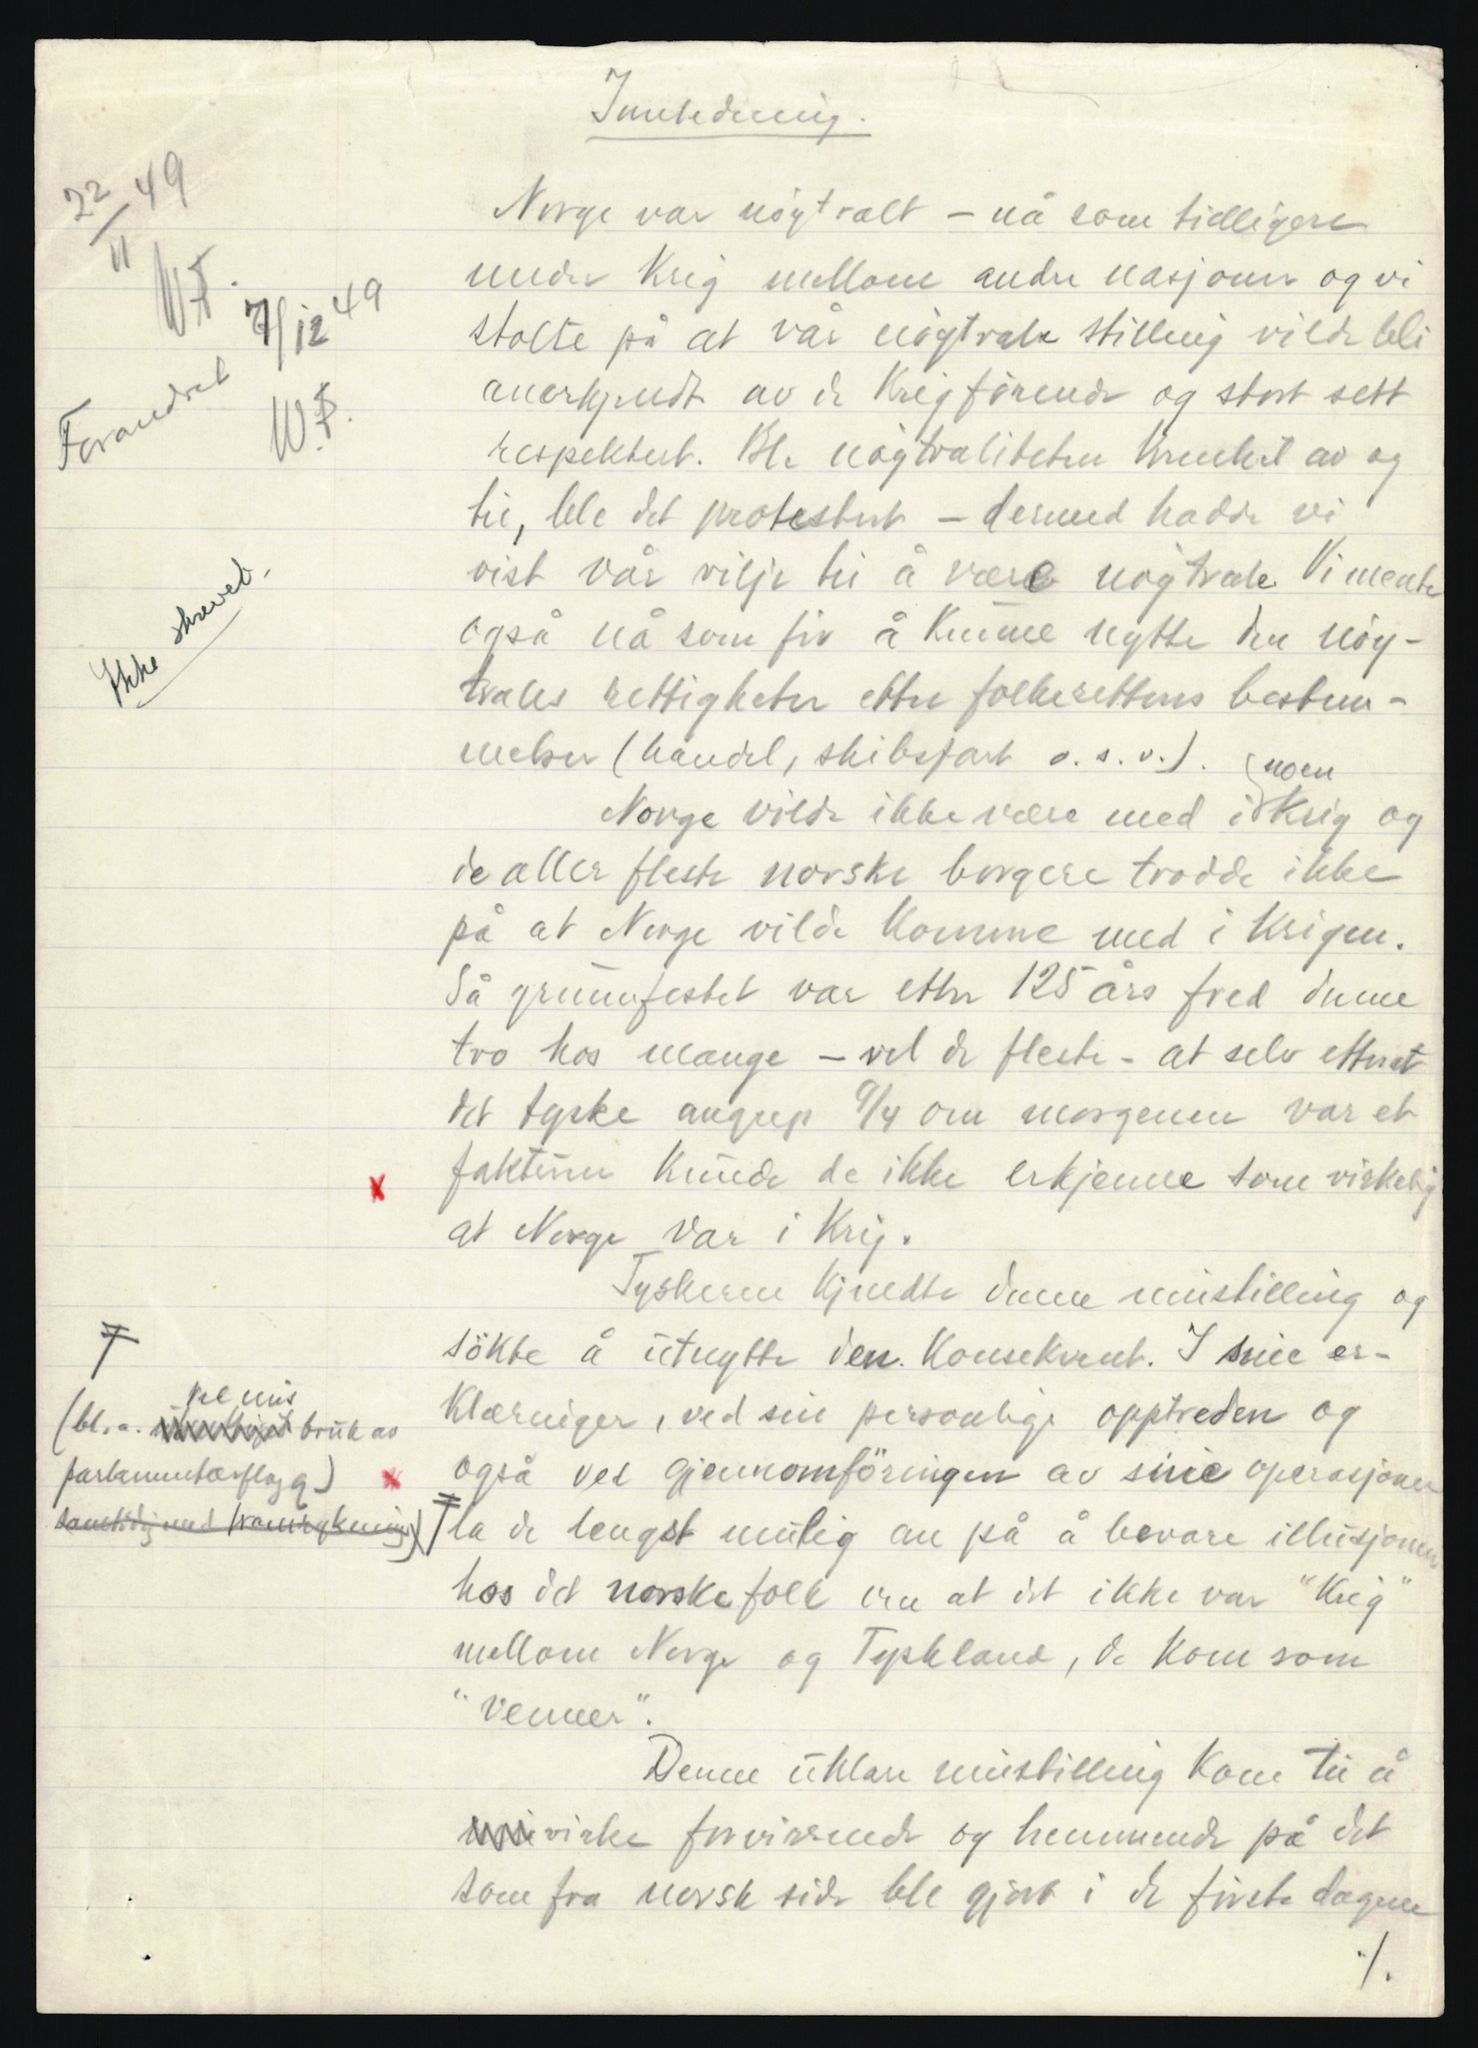 Innledning.
22/11 49
W.F.
Forandret 7/12 49
W.F.
Norge var nøytralt – nå som tidligere
under Krig mellom andre nasjoner og vi
stolte på at vår nøytrale stilling vilde bli
anerkjendt av de Krigførende og stort sett
respektert. Ble nøytraliteten krenket av og
til, ble det protestert – dermed hadde vi
vist vår vilje til å være nøytrale. Vi mente
også nå som før å kunne nytte den nøy-
trales rettigheter etter folkerettens bestem-
melser (handel, skibsfart o.s.v.).
Ikke skrevet.
noen
Norge vilde ikke være med i Krig og
de aller fleste norske borgere trodde ikke
på at Norge vilde komme med i Krigen.
Så grunnfestet var etter 125 års fred denne
tro hos mange – vel de fleste – at selv etterat
det tyske angrep 9/4 om morgenen var et
x faktum kunde de ikke erkjenne som virkelig
at Norge var i Krig.
Tyskerne kjendte denne innstilling og
søkte å utnytte den konsekvent. I sine er-
klæringer, ved sin personlige opptreden og
x også ved gjennomföringen av sine operasjoner
la de lengst mulig an på å bevare illusjonen
hos det norske folk om at det ikke var "Krig"
mellom Norge og Tyskland, de kom som
"venner".
pel mis
(bl.a. bruk av
parlamentærflagg)
samtidig med framrykning)
Denne uklare innstilling kom til å
virke forvirrende og hemmende på det
som fra norsk side ble gjort i de første dagene
./.